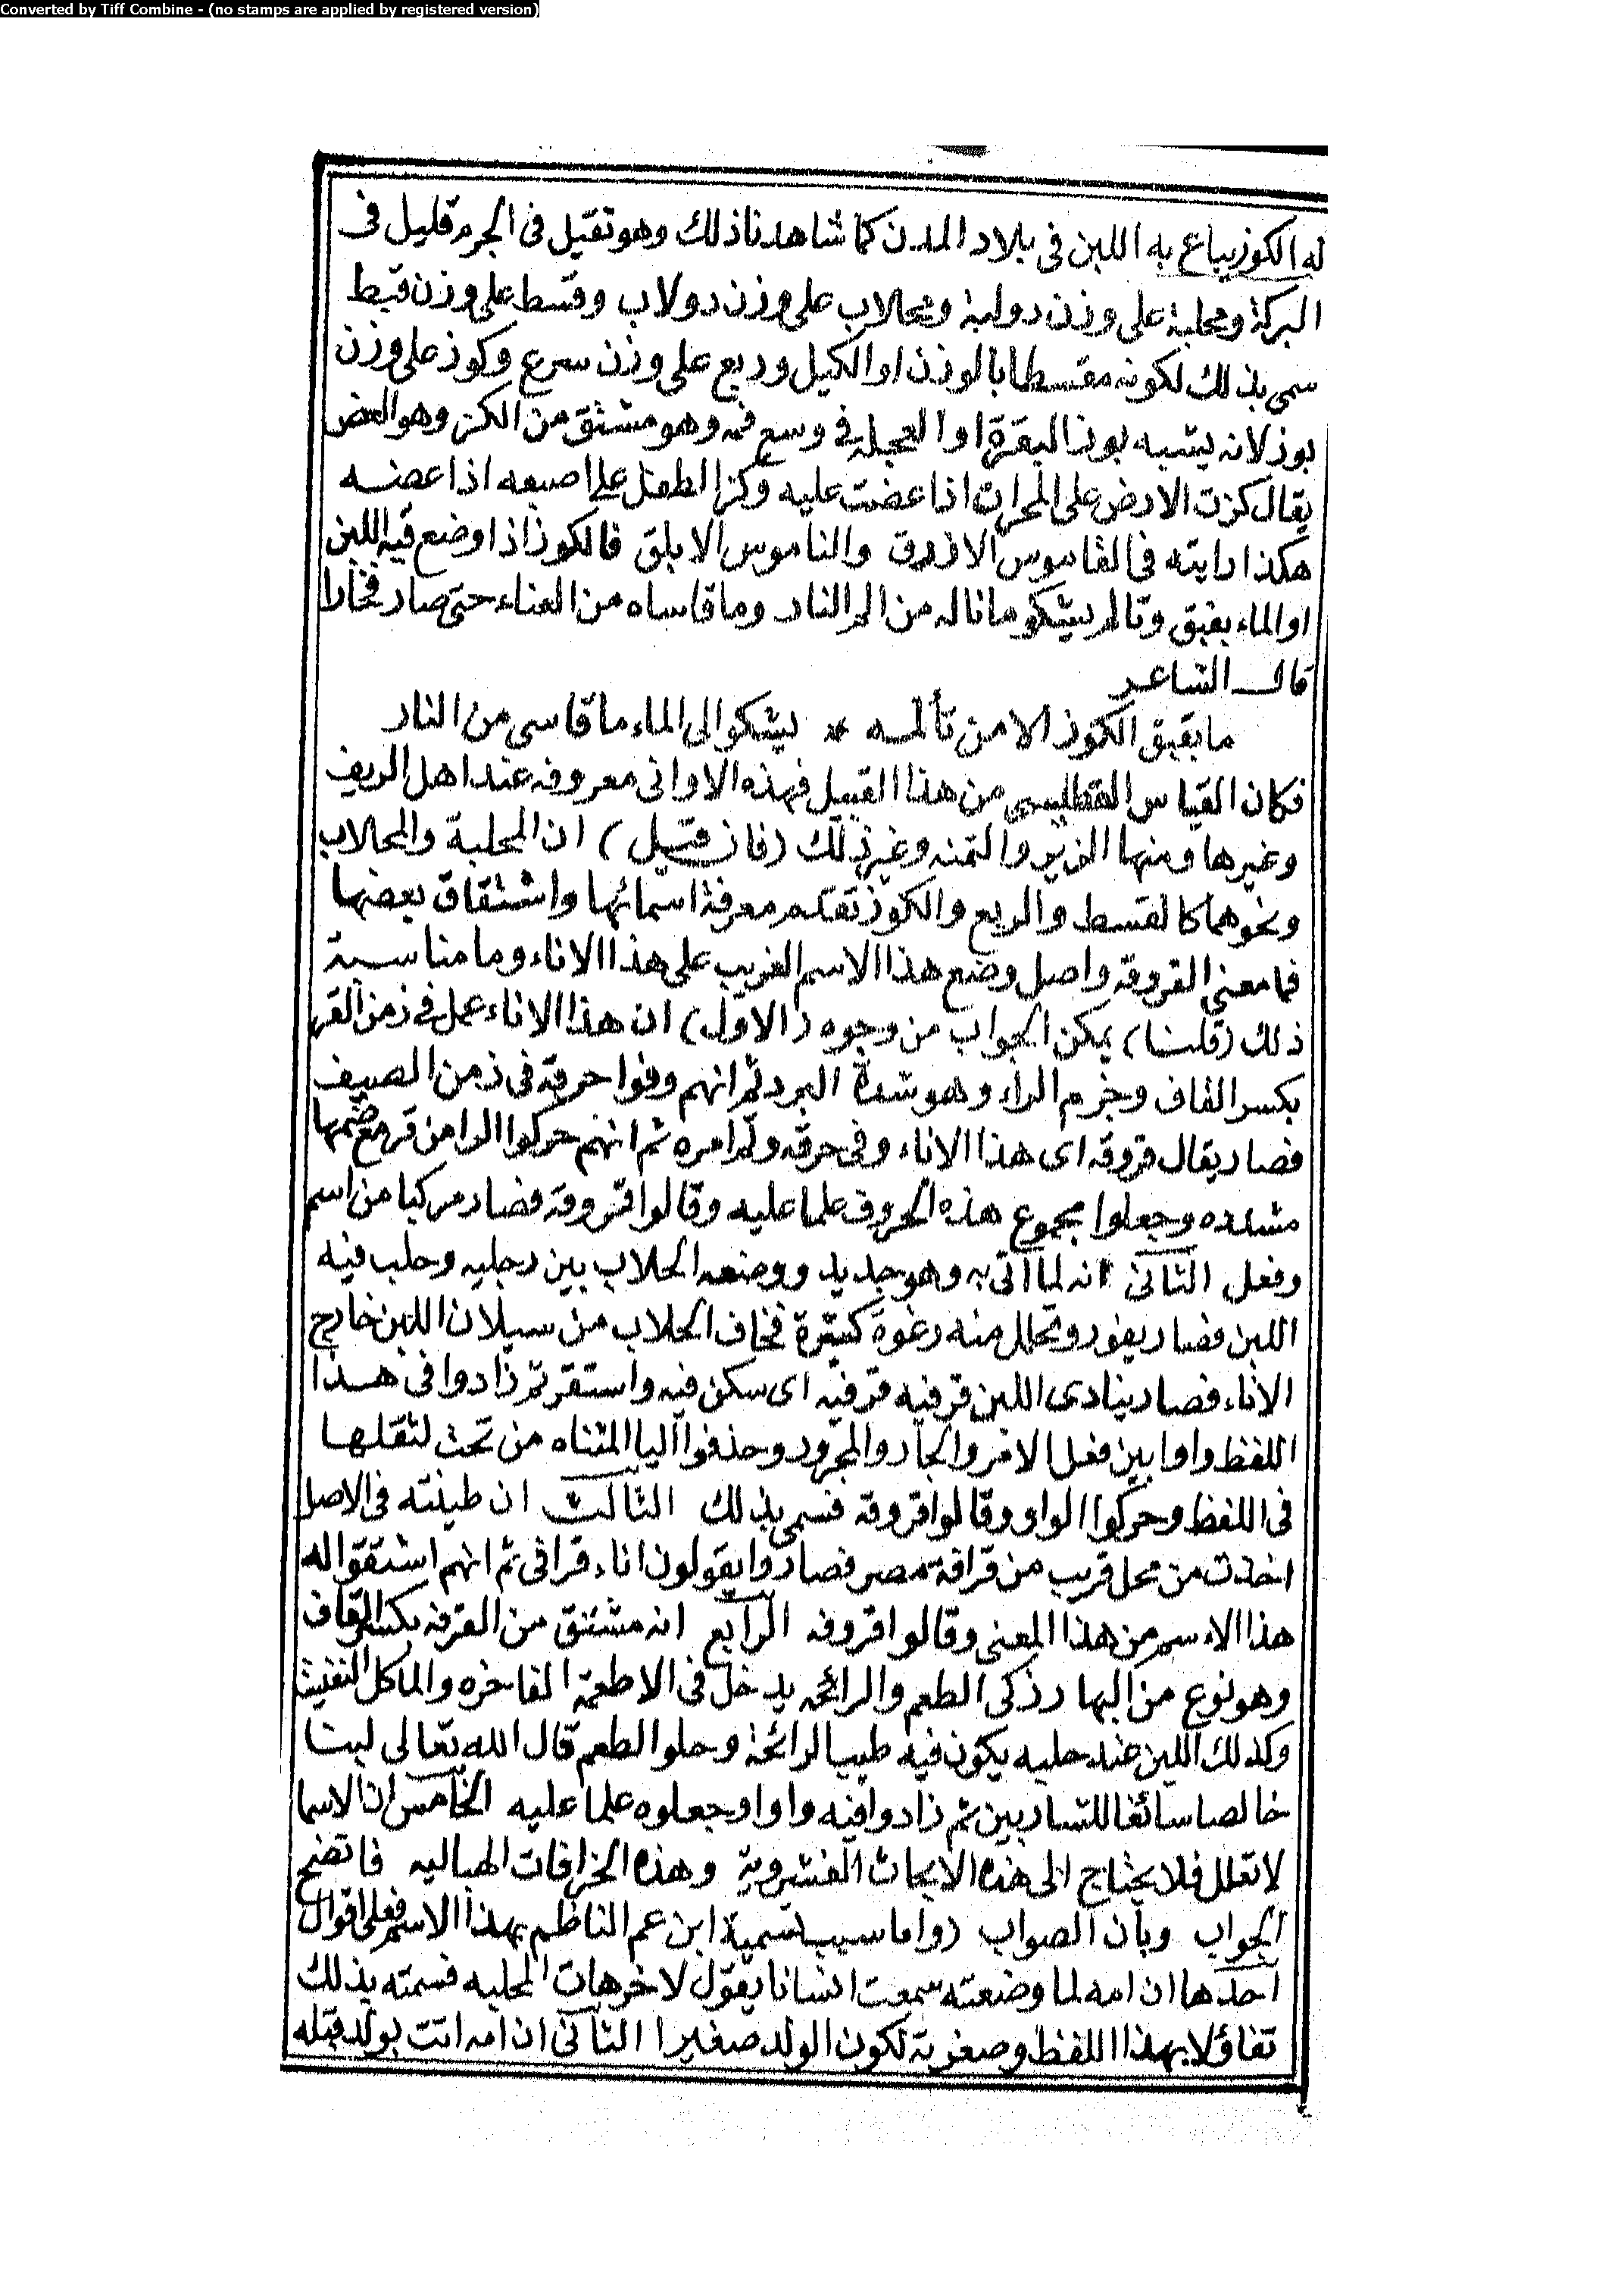 Converted by Tiff Combine - (no stamps are applied by registered version)
له الكوز يباع به اللبن فى بلاد المدن كما شاهدنا ذلك وهو ثقيل فى الجرم قليل فى
البركة ومحلبة على وزن دولبة ومحلاب على وزن دولاب وقسط على وزن قبط
سمى بذلك لكونه مقسطا بالوزن او الكيل وربع على وزن سرع وكوز على وزن
بوز لانه يشبه بوز البقرة او العجله فى وسع فمه وهو مشتق من الكز وهو العض
يقال كزت الارض على المحراث اذا عضت عليه وكز الطفل على اصبعه اذا عضه
هكذا رايته فى القاموس الازرق والناموس الابلق فالكوز اذا وضع فيه اللبن
او الماء يبقبق وتالم يشكو ما ناله من الم النار وما قاساه من العناء حتى صار فخارا
قال الشاعر
ما بقبق الكوز الا من تألمه * يشكو الى الماء ما قاسى من النار
فكان القياس من هذا القبيل فهذه الاوانى معروفه عند اهل الريف
وغيرها ومنها الزير والتمنه وغير ذلك (فان قيل) ان المحلبة والمحلاب
ونحوهما كالقسط والربع والكوز تقدم معرفة اسمائها واشتقاق بعضها
فما معنى القروفه واصل وضع هذا الاسم الغريب على هذا الاناء وما مناسبة
ذلك (قلنا) يمكن الجواب من وجوه (الاول) ان هذا الاناء عمل فى زمن القر
بكسر القاف وجزم الراء وهو شدة البرد ثم انهم وفوا حرقه فى زمن الصيف
فصار يقال قروفه اى هذا الاناء وفى حرقه ولم امره ثم انهم حركوا الرا من قر مع ضمها
مشدده وجعلوا مجموع هذه الحروف علما عليه وقالوا قروفه فصار مركبا من اسم
وفعل الثانى انه لما اتى به وهو جديد ووضعه الحلاب بين رجليه وحلب فيه
اللبن فصار يفور وتحلل منه رغوة كثيرة فخاف الحلاب من سيلان اللبن خارج
الاناء فصار ينادى اللبن قر فيه قر فيه اى سكن فيه واستقر ثم زادوا فى هذا
اللفظ واوا بين فعل الامر والجار والمجرور وحذفوا اليا المثناه من تحت لثقلها
فى اللفظ وحركوا الواو وقالوا قروفه فسمى بذلك الثالث ان طينته فى الاصل
اخذت من محل قريب من قرافة مصر فصاروا يقولون اناء قرافى ثم انهم اشتقوا له
هذا الاسم من هذا المعنى وقالوا قروفه الرابع انه مشتق من القرفه بكسر القاف
وهو نوع من البهار زكى الطعم والرائحه يدخل فى الاطعمة الفاخره والماكل النفيسة
وكذلك اللبن عند حلبه يكون فيه طيب الرائحة وحلو الطعم قال الله تعالى لبنا
خالصا سائغا للشاربين ثم زادوا فيه واوا وجعلوه علما عليه الخامس ان الاسما
لا تعلل فلا يحتاج الى هذه الابحاث الفشروية وهذه الخرافات الهباليه فاتضح
الجواب وبان الصواب (واما سبب تسمية ابن عم الناظم بهذا الاسم فعلى اقوال
احدها ان امه لما وضعته سمعت انسانا يقول لاخر هات المحلبه فسمته بذلك
تفاؤلا بهذا اللفظ وصغرته لكون الولد صغيرا الثانى ان امه اتت بولد قبله